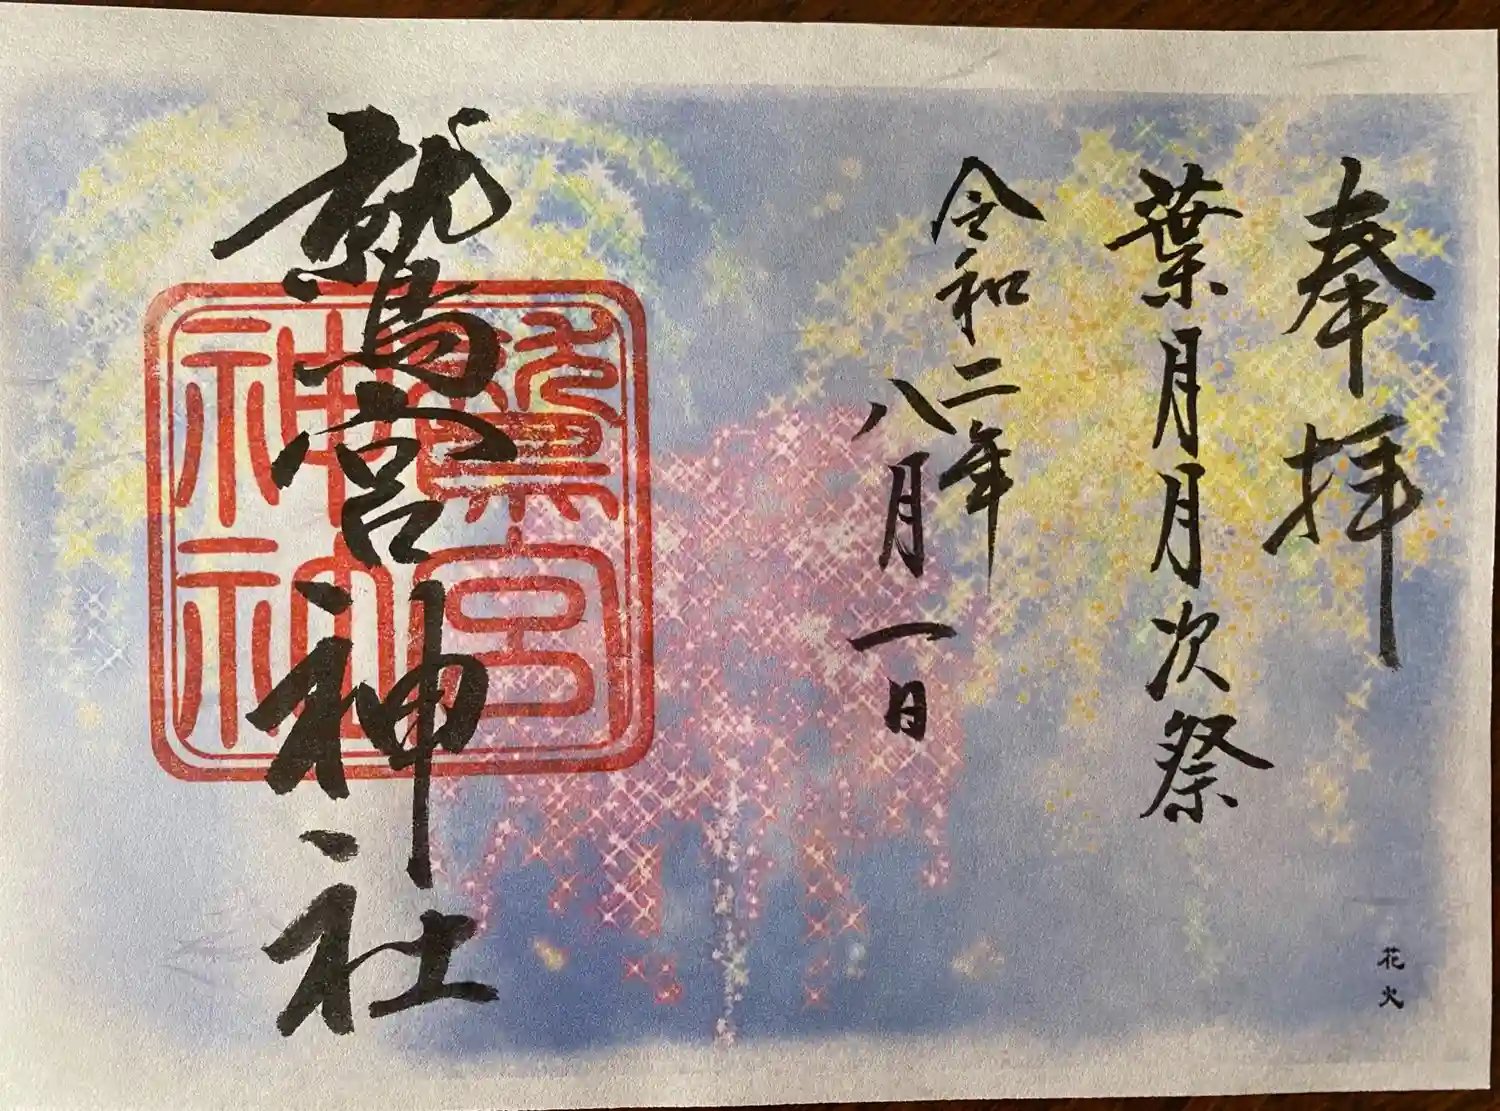 奉拝
葉月月次祭
令和二年
八月一日
鷲宮神社
鷲宮
神
花火